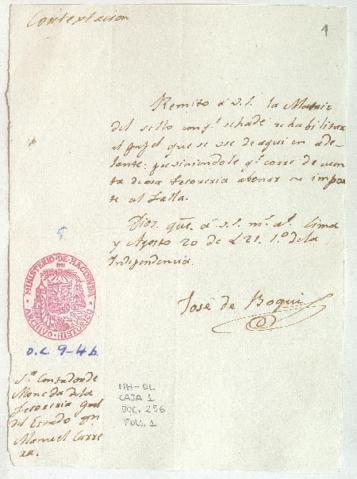 Contextacion
1
Remito á V.S. la Matriz
del sello con q.e se ha de rehabilitar
el papel que se use de aqui en ade-
lante: previniendole q.e corre de cuen-
ta de esa Tesoreria abonar su impor-
te al Talla.
Dios gue. á V.S. m.s a.s Lima
y Agosto 20 de 1821. 1.o de la
Independencia.
José de Boqui
MINISTERIO DE HACIENDA
ARCHIVO HISTORICO
O.L. 9-4b
S.or Contador de
Moneda de la
Tesoreria gral
del Estado Dn.
Manuel Carre
ra.
MH-OL
CAJA 1
DOC. 256
FOL. 1